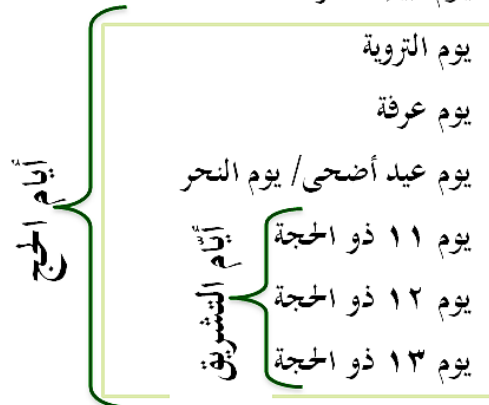 يوم التروية
يوم عرفة
يوم عيد أضحى/ يوم النحر
يوم ١١ ذو الحجة
يوم ١٢ ذو الحجة
يوم ١٣ ذو الحجة
أيّام التشريق
أيّام الحج